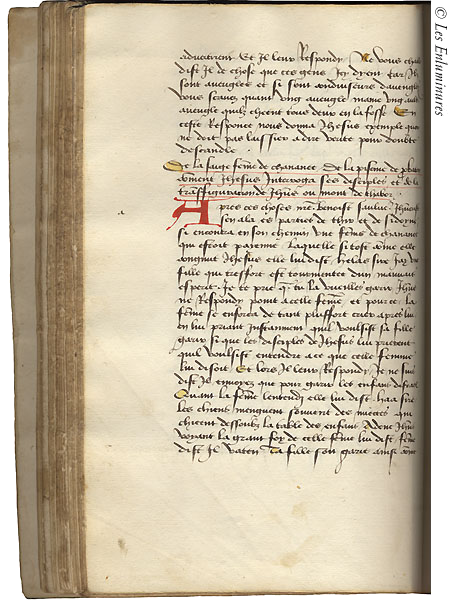 aduertirent Et Il leur Respondy Ne vous
dist Il de chose que ces gens Icy dyent Car Ilz
sont aueuglez et si sont conduiseurs daueugles
vous scauez quant vng aueugle maine vng aultre
aueugle quilz cheent tous deux en la fosse En
ceste Responce nous donna Jhesus exemple que
ne doit pas laissier a dire verite pour doubte
descandle
De la sainte feme de chananee De la
coment Jhesus Interroga ses disciples et de la
transfiguration de Jhus ou mont de thabor
Apres ces choses nre benoist sauluer Jhesus
sen ala es parties de thir et de sidoin
si encontra en son chemin vne feme de chananee
qui estoit payenne Laquelle si tost come elle
congnut Jhesus elle luy dist helas sire Jay vne
fille qui tresfort est tourmentee dun mauuait
esperit Je te prie q tu la vueilles garir Jhus
ne Respondy point a celle feme et pource la
feme se enforca de tant plus fort crier apres luy
en luy priant Instamment quil voulsist sa fille
garir si que les disciples de Jhesus luy prierent
quil voulsist entendre a ce que celle femme
luy disoit Et lors Il leur Respondy Je ne suis
dist Il enuoyez que pour garir les enfans disrael
Quant la feme lentendi elle luy dist haa sire
les chiens menguent souuent des miectes qui
chieent dessoubz la table des enfans Adont Jhus
voyant la grant foy de celle feme luy dist feme
dist Il vaten Ta fille soit garie ainsi come
© Les Enluminures